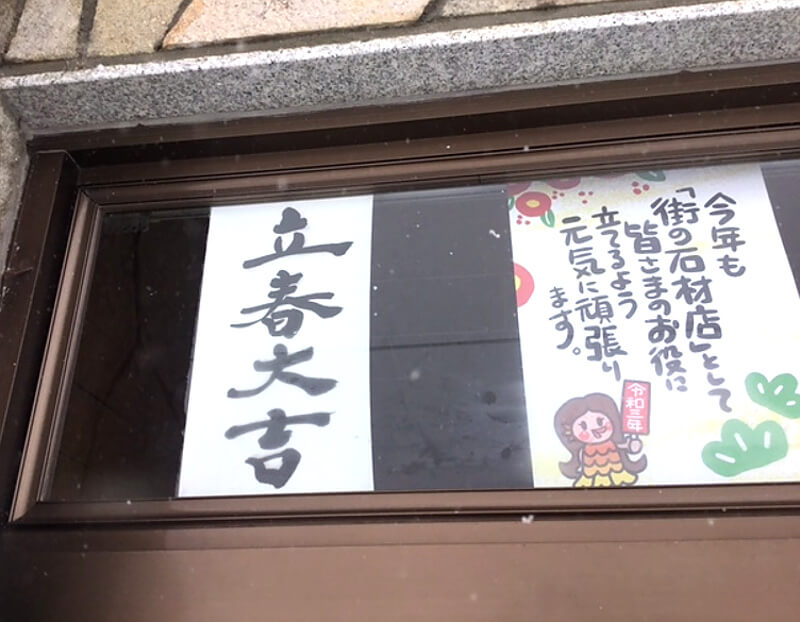 立春大吉
今年も
「街の石材店」として
皆さまのお役に
立てるよう
元気に頑張り
ます。
令和三年